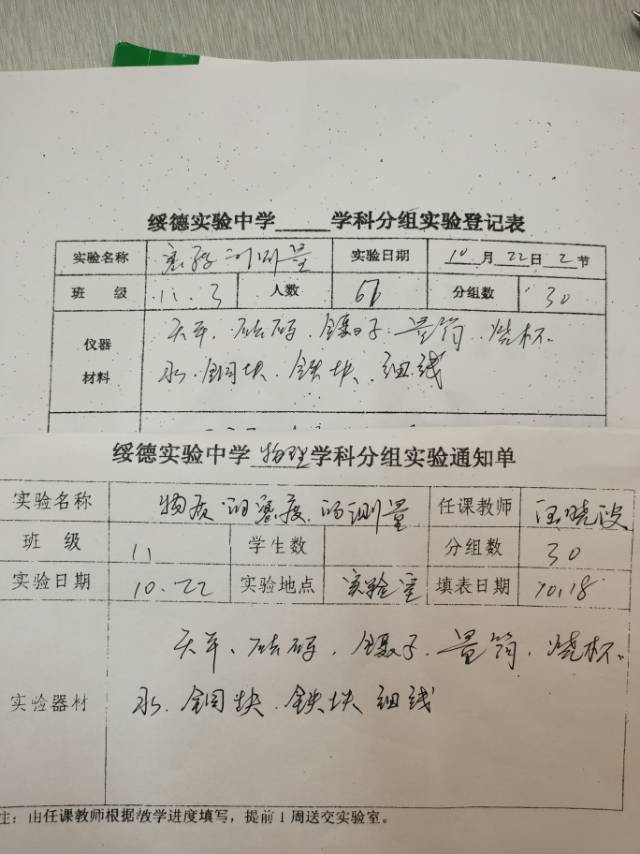 绥德实验中学_____学科分组实验登记表
实验名称 密度的测量 实验日期 10月22日2节
班 级 11.3 人数 61 分组数 30
仪器 天平、砝码、镊子、量筒、烧杯、
材料 水、铜块、铁块、细线
绥德实验中学物理学科分组实验通知单
实验名称 物质的密度的测量 任课教师
班 级 11 学生数 分组数 30
实验日期 10.22 实验地点 实验室 填表日期 10.18
天平、砝码、镊子、量筒、烧杯、
实验器材 水、铜块、铁块 细线
注：由任课教师根据教学进度填写，提前1周送交实验室。